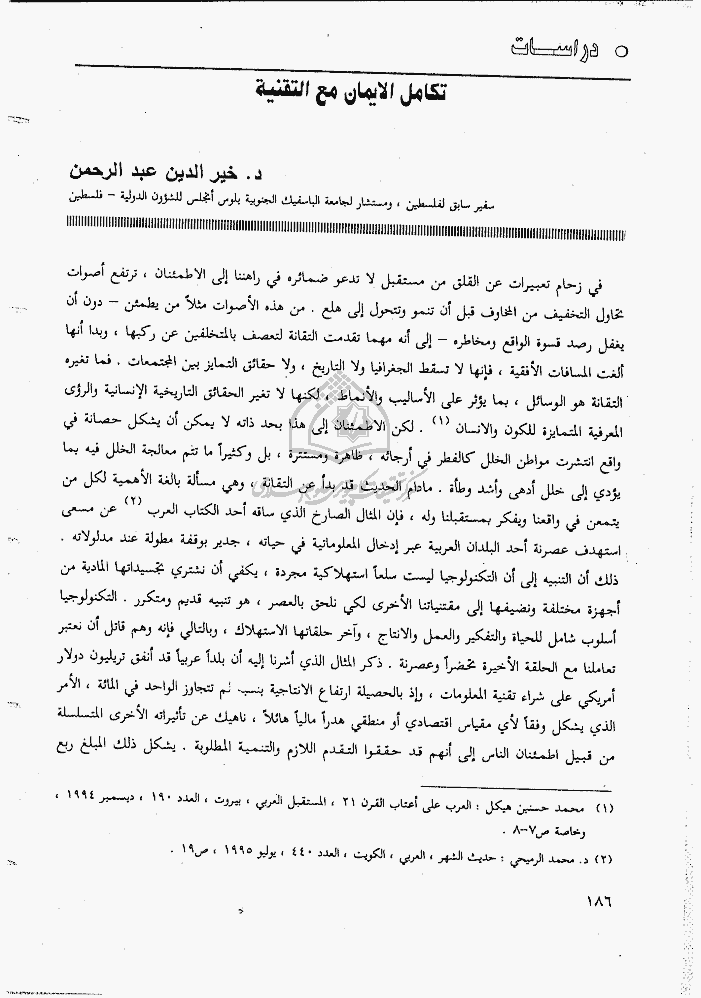 ○ دراسات
تكامل الايمان مع التقنية
د. خير الدين عبد الرحمن
سفير سابق لفلسطين ، ومستشار لجامعة الباسفيك الجنوبية بلوس أنجلس للشؤون الدولية – فلسطين
في زحام تعبيرات عن القلق من مستقبل لا تدعو ضمائره في راهننا إلى الاطمئنان ، ترتفع أصوات
تحاول التخفيف من المخاوف قبل أن تنمو وتتحول إلى هلع . من هذه الأصوات مثلاً من يطمئن – دون أن
يغفل رصد قسوة الواقع ومخاطره – إلى أنه مهما تقدمت التقانة لتعصف بالمتخلفين عن ركبها ، وبدا أنها
ألغت المسافات الأفقية ، فإنها لا تسقط الجغرافيا ولا التاريخ ، ولا حقائق التمايز بين المجتمعات . فما تغيره
التقانة هو الوسائل ، بما يؤثر على الأساليب والأنماط ، لكنها لا تغير الحقائق التاريخية الإنسانية والرؤى
المعرفية المتمايزة للكون والانسان (١) . لكن الاطمئنان إلى هذا بحد ذاته لا يمكن أن يشكل حصانة في
واقع انتشرت مواطن الخلل كالفطر في أرجائه ، ظاهرة ومستترة ، بل وكثيراً ما تتم معالجة الخلل فيه بما
يؤدي إلى خلل أدهى وأشد وطأة . مادام الحديث قد بدأ عن التقانة ، وهي مسألة بالغة الأهمية لكل من
يتمعن في واقعنا ويفكر بمستقبلنا وله ، فإن المثال الصارخ الذي ساقه أحد الكتاب العرب (٢) عن مسعى
استهدف عصرنة أحد البلدان العربية عبر إدخال المعلوماتية في حياته ، جدير بوقفة مطولة عند مدلولاته .
ذلك أن التنبيه إلى أن التكنولوجيا ليست سلعاً استهلاكية مجردة ، يكفي أن نشتري تجسيداتها المادية من
أجهزة مختلفة ونضيفها إلى مقتنياتنا الأخرى لكي نلحق بالعصر ، هو تنبيه قديم ومتكرر . التكنولوجيا
أسلوب شامل للحياة والتفكير والعمل والانتاج ، وآخر حلقاتها الاستهلاك ، وبالتالي فإنه وهم قاتل أن نعتبر
تعاملنا مع الحلقة الأخيرة تحضراً وعصرنة . ذكر المثال الذي أشرنا إليه أن بلداً عربياً قد أنفق تريليون دولار
أمريكي على شراء تقنية المعلومات ، وإذ بالحصيلة ارتفاع الانتاجية بنسب لم تتجاوز الواحد في المائة ، الأمر
الذي يشكل وفقاً لأي مقياس اقتصادي أو منطقي هدراً مالياً هائلاً ، ناهيك عن تأثيراته الأخرى المتسلسلة
من قبيل اطمئنان الناس إلى أنهم قد حققوا التقدم اللازم والتنمية المطلوبة . يشكل ذلك المبلغ ربع
(١) محمد حسنين هيكل : العرب على أعتاب القرن ٢١ ، المستقبل العربي ، بيروت ، العدد ١٩٠ ، ديسمبر ١٩٩٤ ،
وخاصة ص٧–٨ .
(٢) د. محمد الرميحي : حديث الشهر ، العربي ، الكويت ، العدد ٤٤٠ ، يوليو ١٩٩٥ ، ص١٩ .
١٨٦